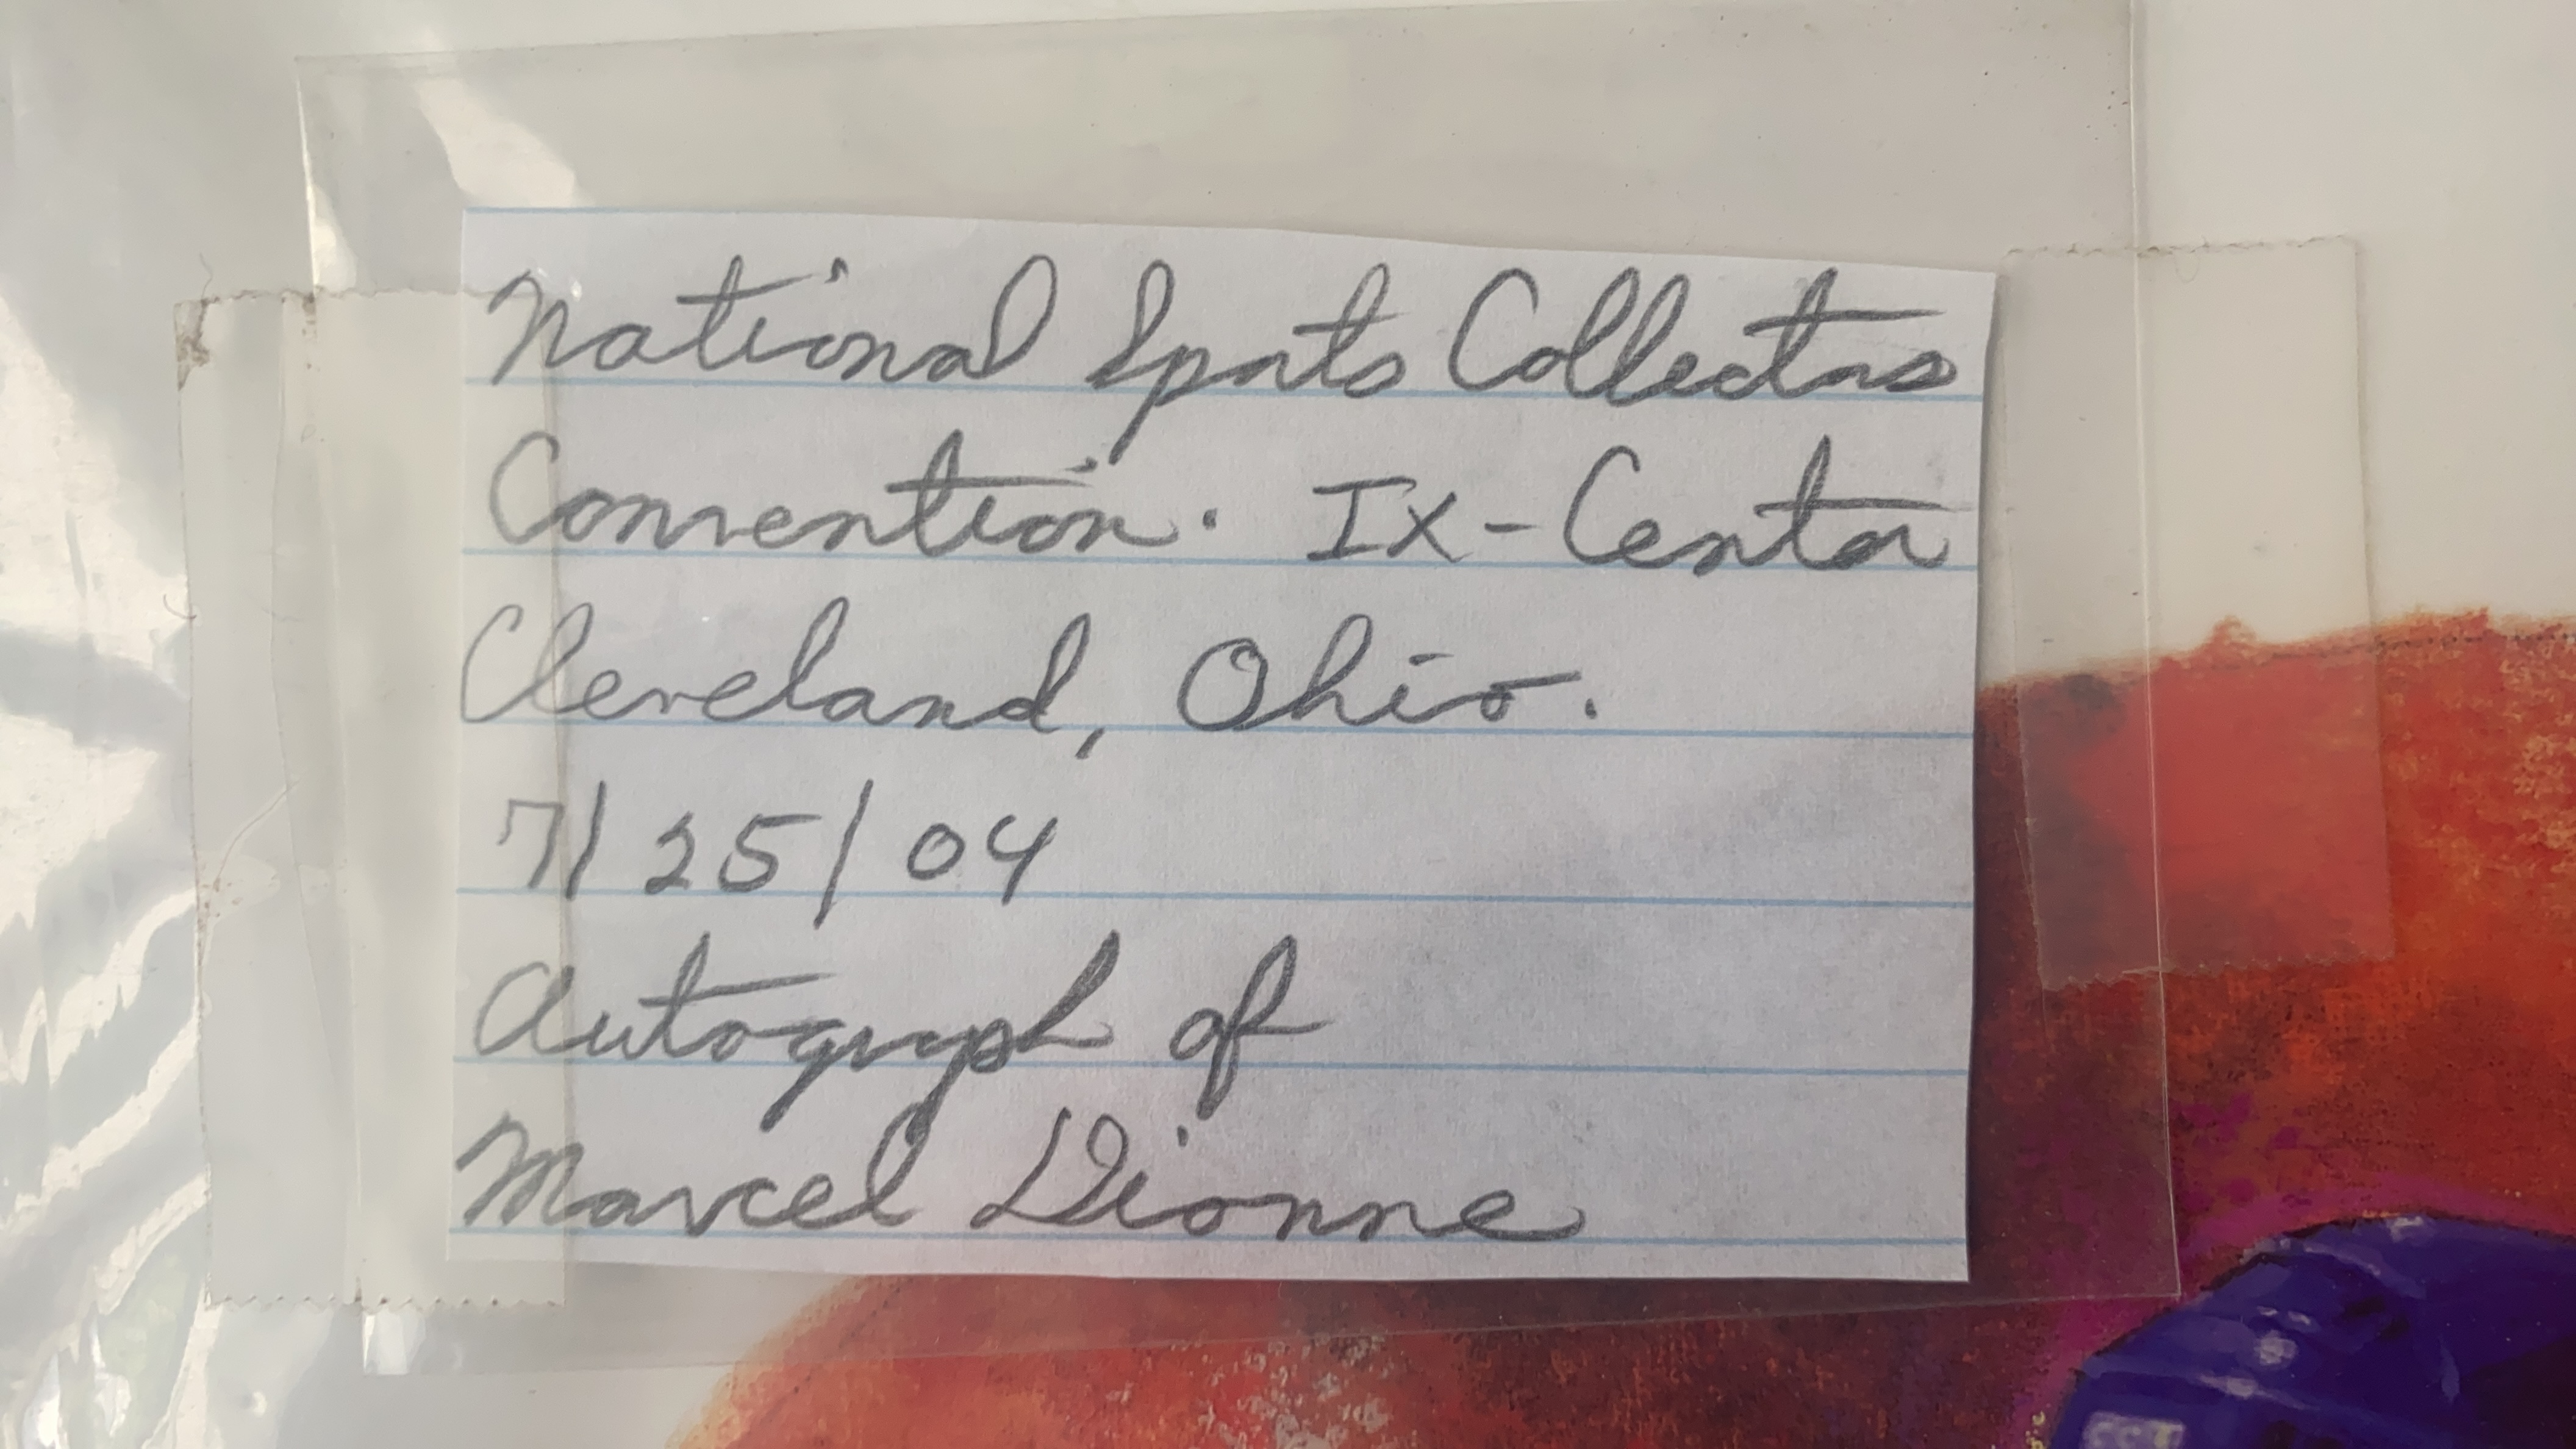 National Sports Collectors
Convention. IX-Center
Cleveland, Ohio.
7/25/04
Autograph of
Marcel Dionne